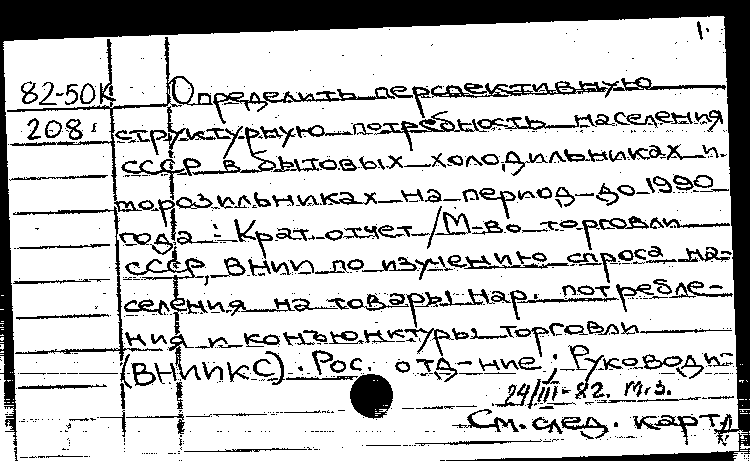 1.
82-50К Определить перспективную
208 структурную потребность населения
СССР в бытовых холодильниках и
морозильниках на период до 1990
года : Крат. отчет / М-во торговли
СССР, ВНИИ по изучению спроса на-
селения на товары нар. потребле-
ния и конъюнктуры торговли
(ВНИИКС). Рос. отд-ние ; Руководи-
24/III-82. М.З.
См. след. карт